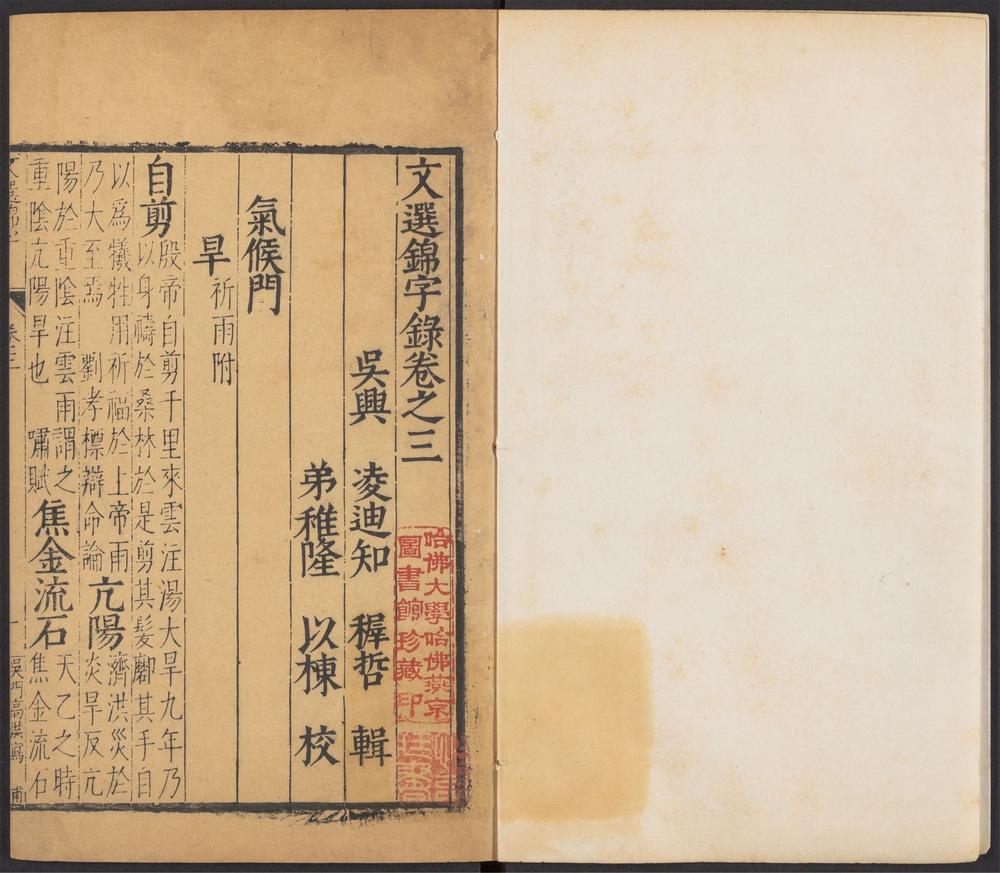 文選錦字錄卷之三
哈佛大學哈佛燕京
圖書館珍藏印
吳興 凌迪知 穉哲 輯
弟稚隆 以棟 校
氣候門
旱 祈雨附
自剪 殷帝自剪千里來雲注湯大旱九年乃
以身禱於桑林於是剪其髮其手自
以爲犧牲用祈福於上帝雨
乃大至焉 劉孝標辯命論
亢陽 濟洪災於
炎旱反亢
陽於重陰注雲雨謂之
重陰亢陽旱也 嘯賦
焦金流石 天乙之時
焦金流石
卷三 一 吳門高洪寫 甫